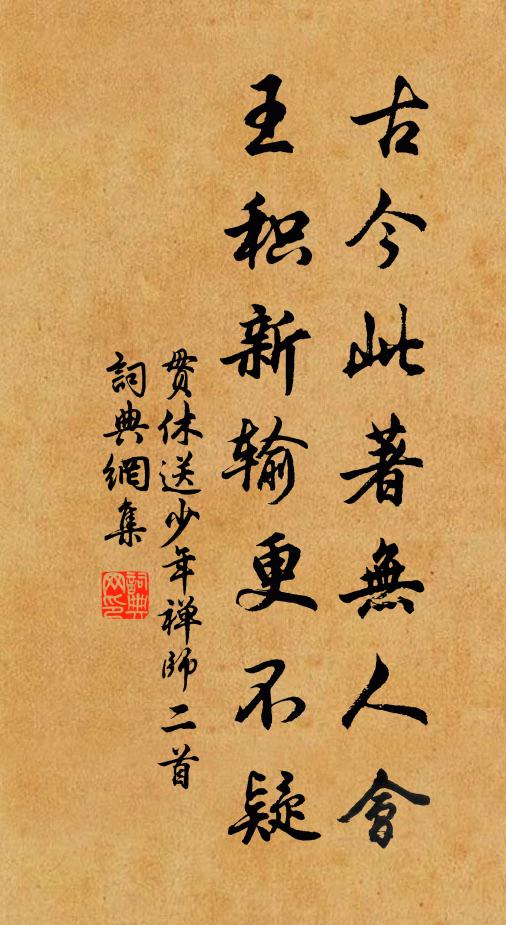 古今此著無人會
王积新输更不疑
贯休送少年禅師二首
詞典網集
詞典网印